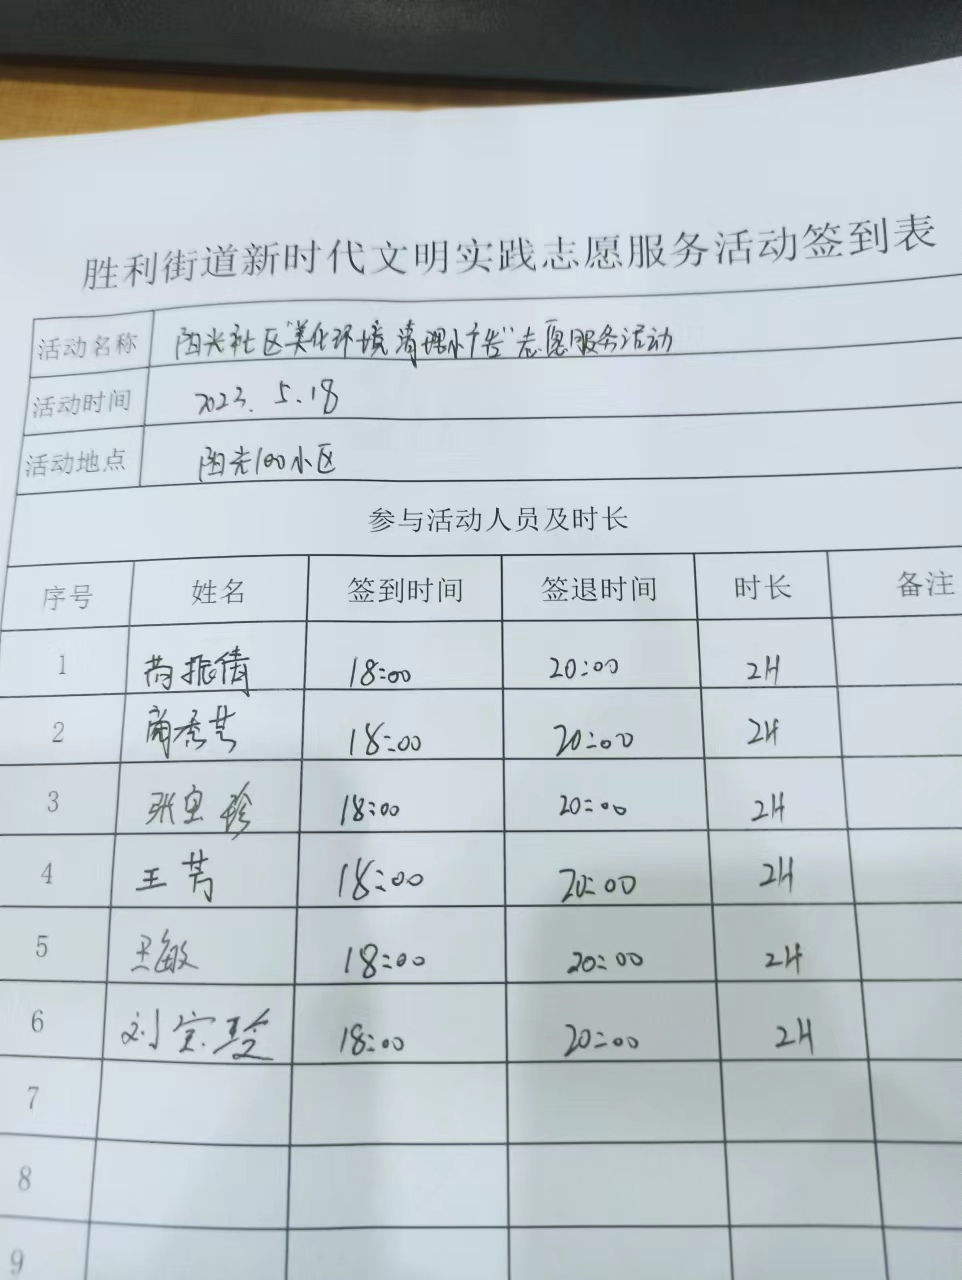 胜利街道新时代文明实践志愿服务活动签到表
活动名称 阳光社区"美化环境 清理小广告"志愿服务活动
活动时间 2023.5.18
活动地点 阳光100小区
参与活动人员及时长
序号 姓名 签到时间 签退时间 时长 备注
1 18:00 20:00 2H
2 18:00 20:00 2H
3 张宝珍 18:00 20:00 2H
4 王芳 18:00 20:00 2H
5 王敏 18:00 20:00 2H
6 刘宝玲 18:00 20:00 2H
7
8
9